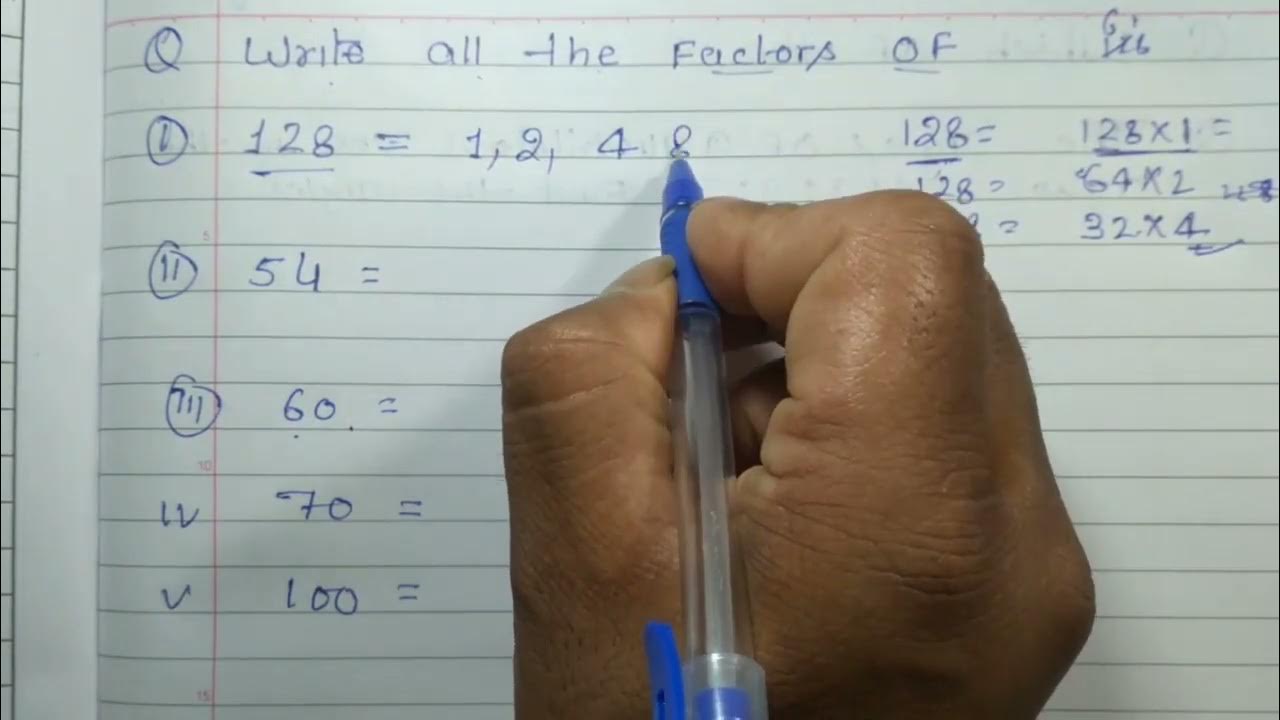 Q Write all the Factors OF
I 128 = 1, 2, 4 8
128 = 128 x 1 =
128 = 64 x 2
= 32 x 4
II 54 =
III 60 =
IV 70 =
V 100 =
5
10
15